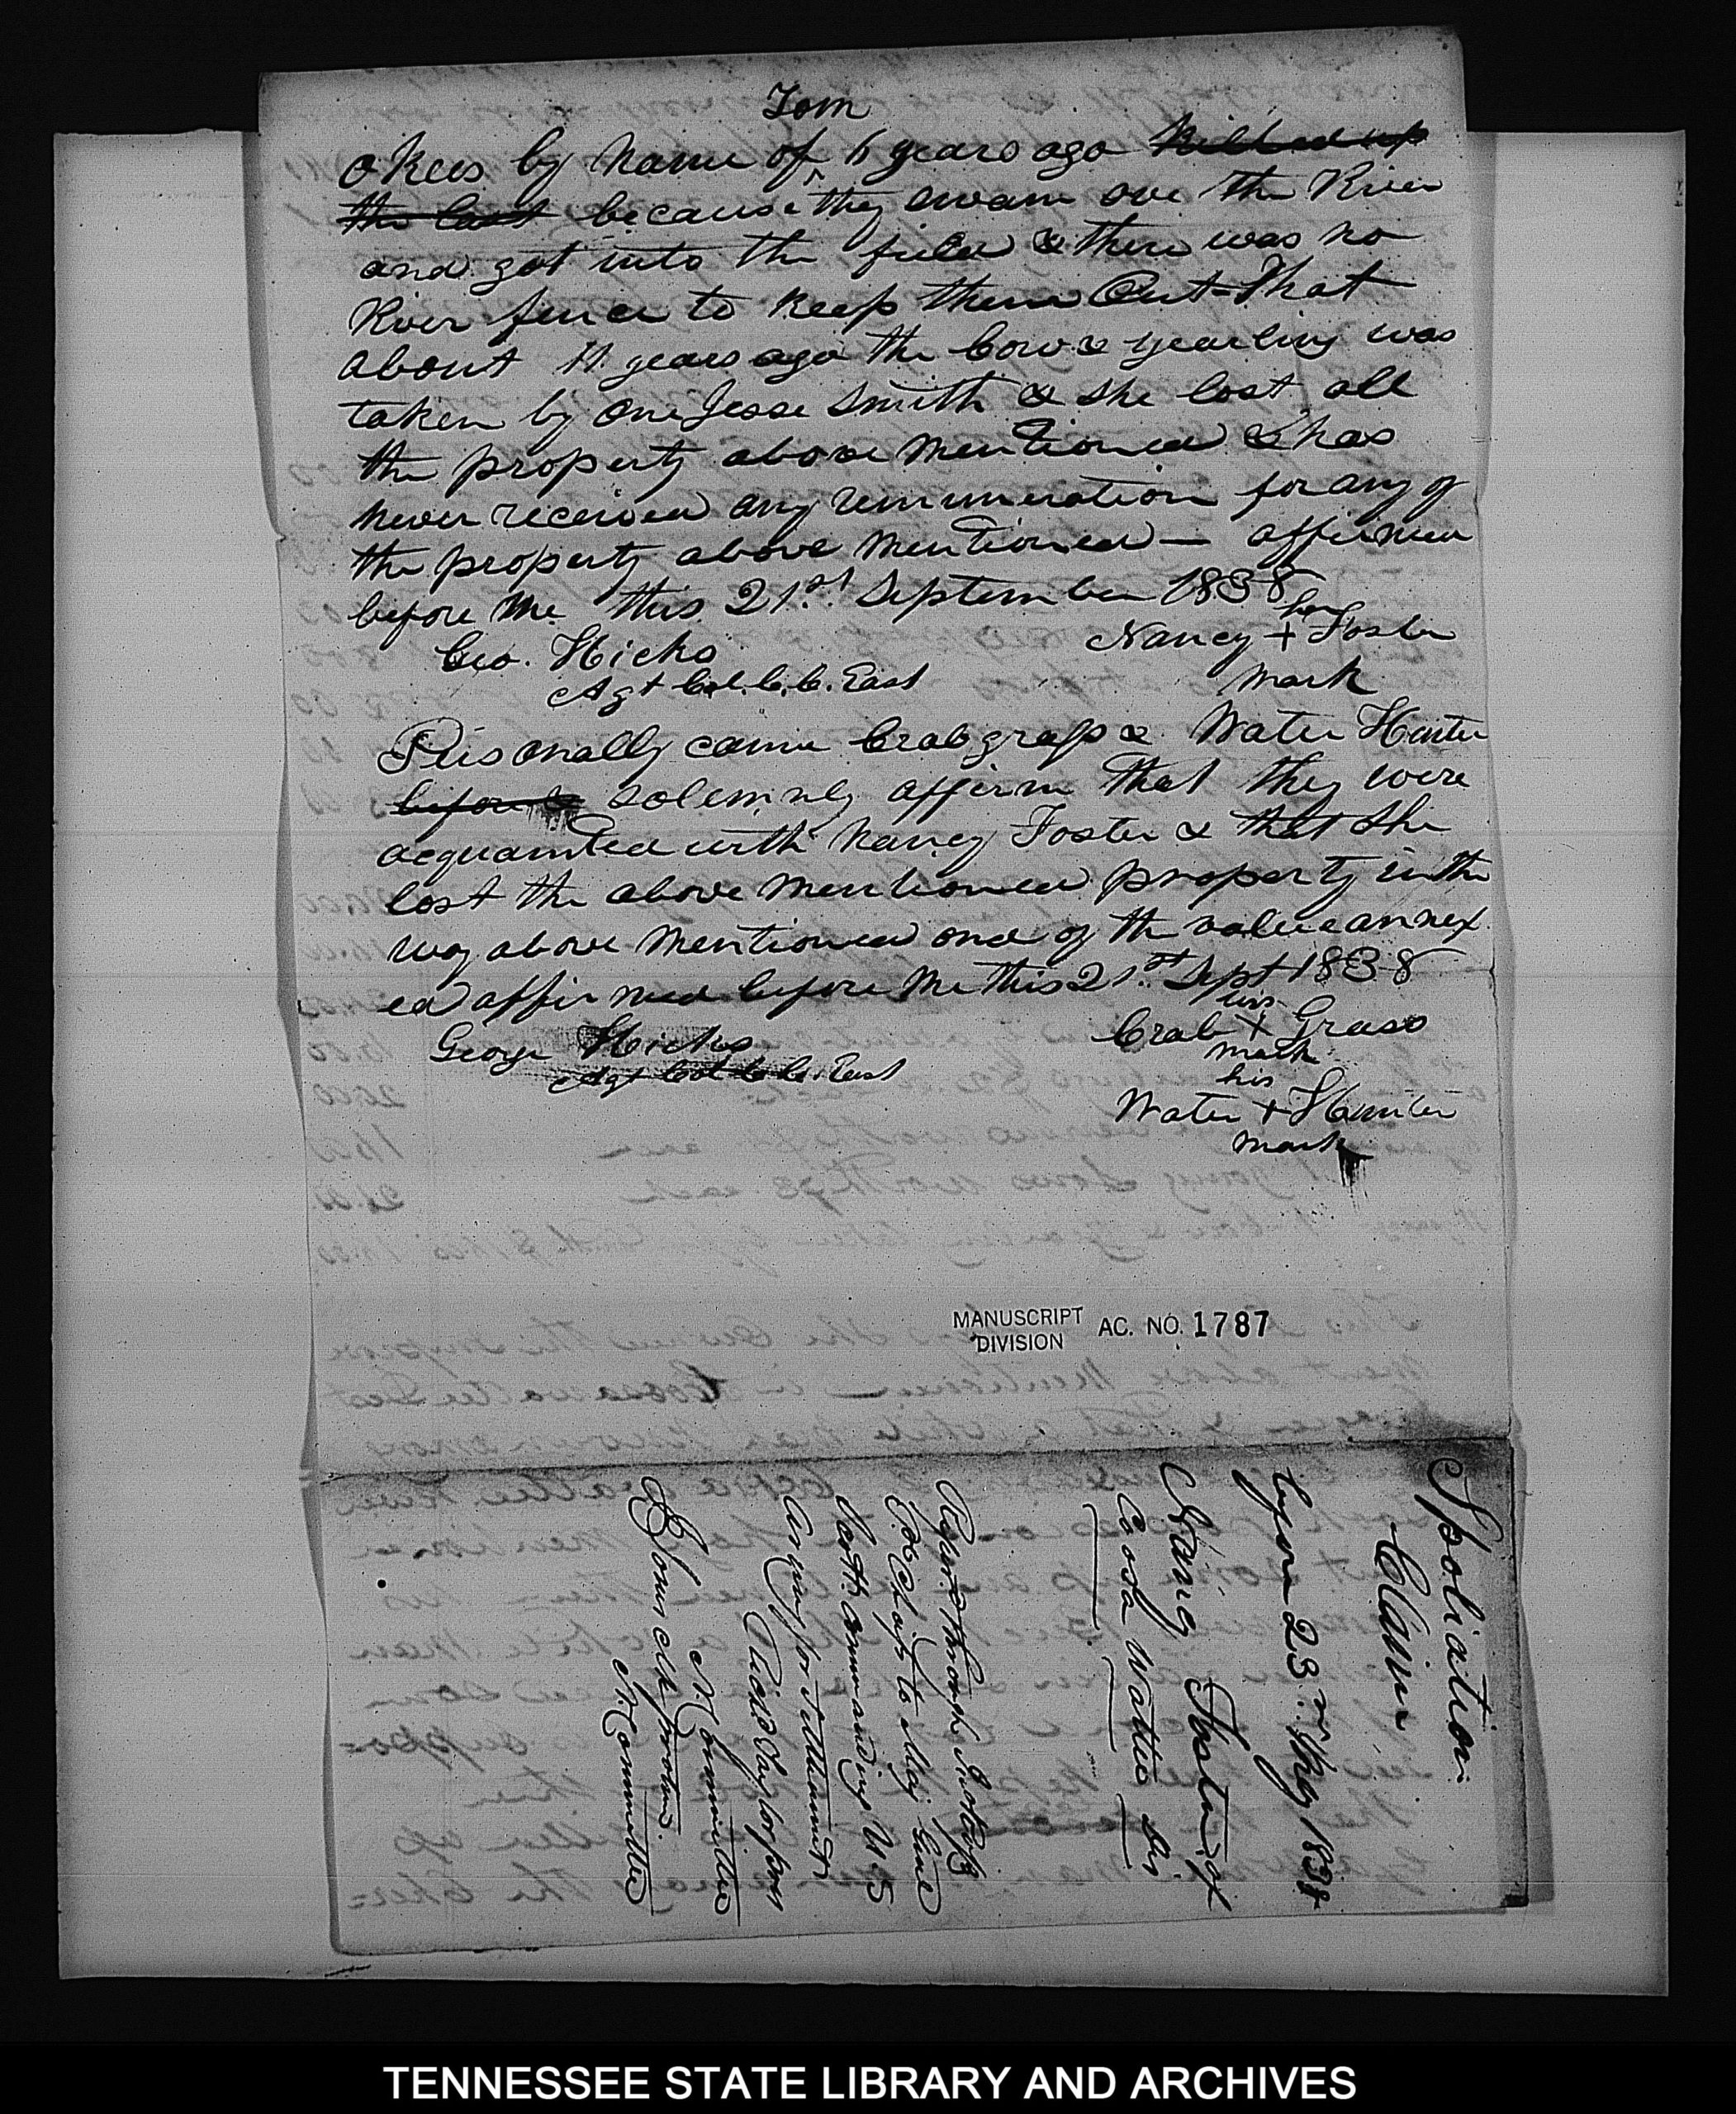 Tom
okees by name of ^ 6 years ago killed up
the last because they swam ove the River
and got into the field & there was no
River fence to keep them Out - That
about 11 years ago the Cow & yearling was
taken by one Jesse Smith & she lost all
the property above mentioned & has
never received any remuneration for any of
the property above mentioned — affirmed
before me this 21st September 1838
her
Geo. Hicks Nancy + Foster
Agt Col. C. C. East mark
Personally came Crabgrass & Water Hunter
before & solemnly affirm that they were
acquainted with Nancy Foster & that she
lost the above mentioned property in the
way above mentioned and of the value annex
ed affirmed before me this 21st Sept 1838
his
George Hicks Crab + Grass
Agt Col C. C. East mark
his
Water + Hunter
mark
MANUSCRIPT DIVISION AC. NO. 1787
Spoliation
Claim
before 23rd May 1838
Nancy Foster of
Coosa Wattee Dis
through
to Maj Genl
Scott commanding U S
for settlement
Richd Taylor prest
N. Committee
clk protem.
N. Committee
TENNESSEE STATE LIBRARY AND ARCHIVES